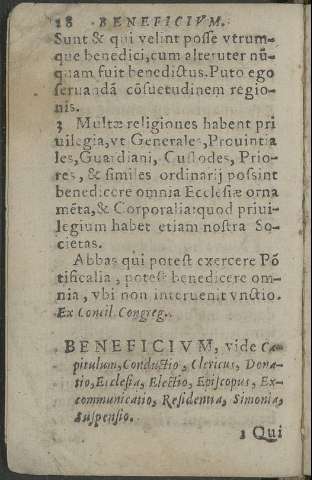 28 · BENEFICIVM.
Sunt & qui velint posse vtrum-
que benedici, cum alteruter nū-
quam fuit benedictus. Puto ego
seruandā cōsuetudinem regio-
nis.
3 Multæ religiones habent pri
uilegia, vt Generales, Prouintia
les, Guardiani, Custodes, Prio-
res, & similes ordinarij possint
benedicere omnia Ecclesiæ orna
mēta, & Corporalia: quod priui-
legium habet etiam nostra So-
cietas.
Abbas qui potest exercere Pō
tificalia, potest benedicere om-
nia, vbi non interuenit vnctio.
Ex Concil. Congreg.
BENEFICIVM, vide Ca-
pitulum, Conductio, Clericus, Dona-
tio, Ecclesia, Electio, Episcopus, Ex-
communicatio, Residentia, Simonia,
Suspensio.
1 Qui